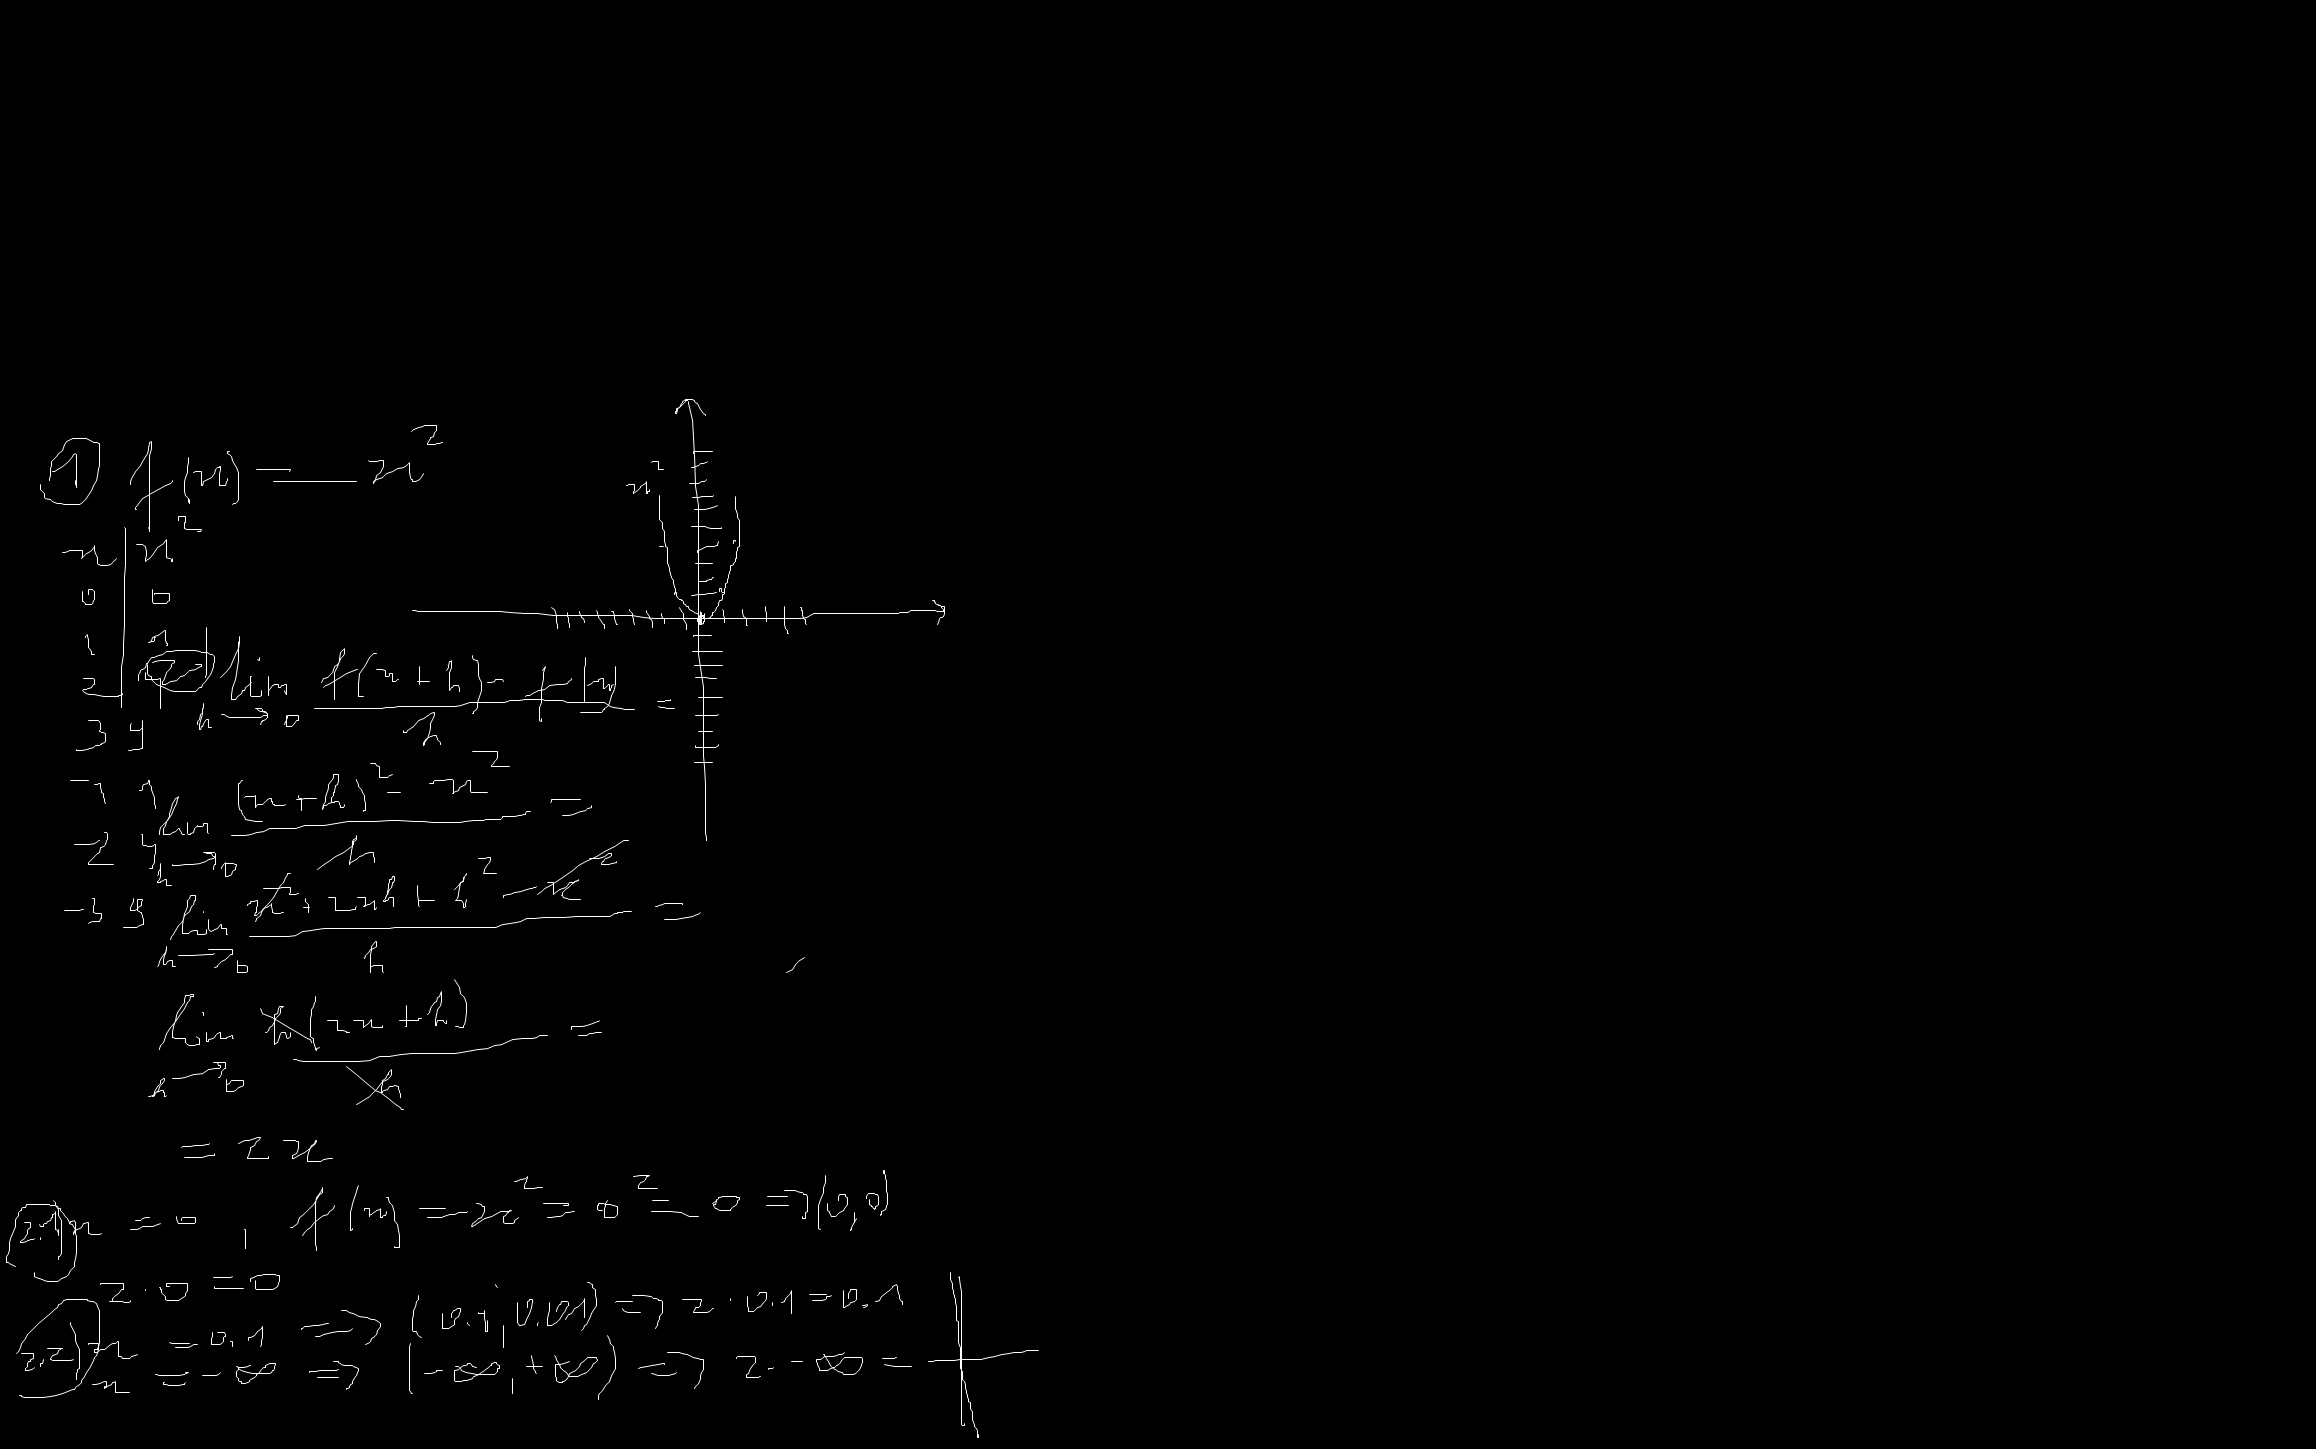 1 f(x) = x²
x²
x | x²
0 | 0
1 | 1
2 | 4
3 9
-1 1
-2 4
-3 9
2 lim h→0 f(x+h) - f(x) / h =
lim h→0 (x+h)² - x² / h =
lim h→0 x² + 2xh + h² - x² / h =
lim h→0 h(2x+h) / h =
= 2x
2.1) x = 0, f(x) = x² = 0² = 0 => (0,0)
2·0 = 0
2.2) x = 0.1 => (0.1, 0.01) => 2·0.1 = 0.1
x = -∞ => (-∞, +∞) => 2·-∞ =